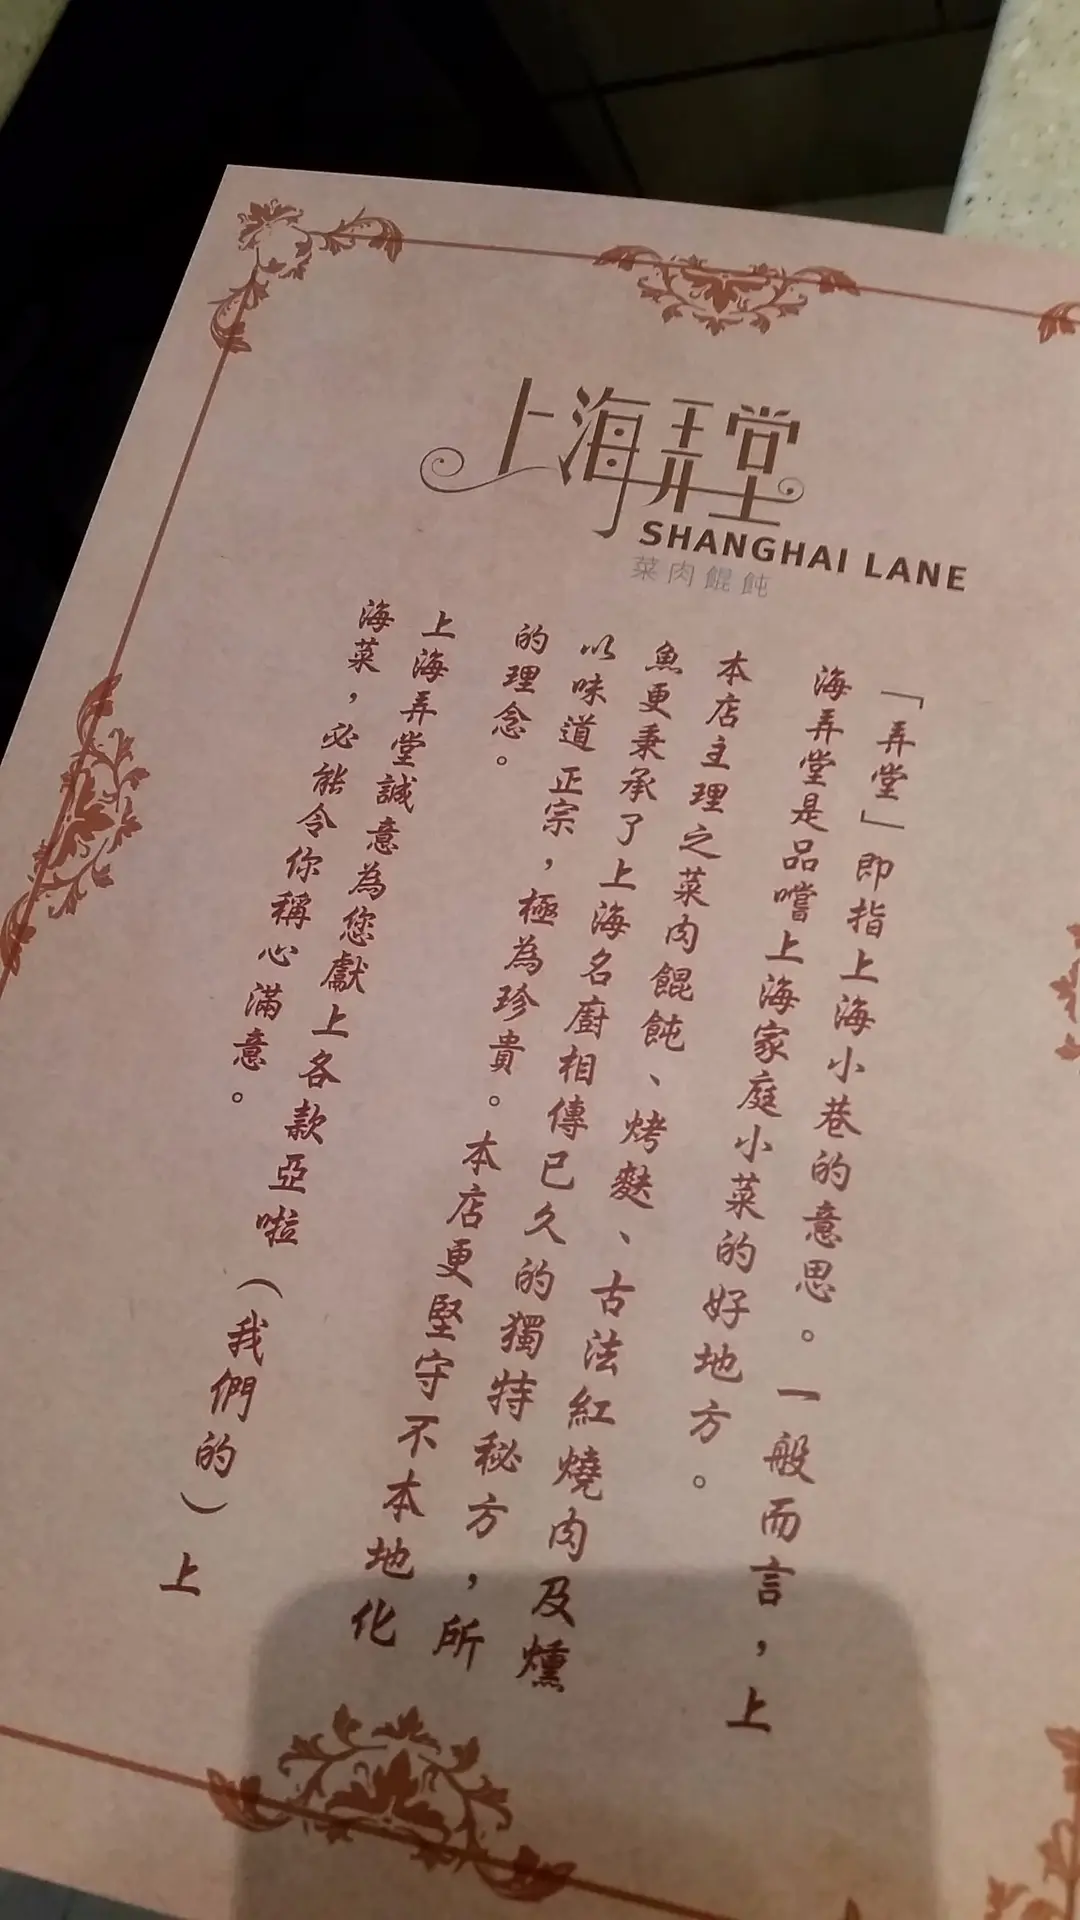 上海弄堂
SHANGHAI LANE
菜肉餛飩
「弄堂」即指上海小巷的意思。一般而言，上
海弄堂是品嚐上海家庭小菜的好地方。
本店主理之菜肉餛飩、烤麩、古法紅燒肉及燻
魚更秉承了上海名廚相傳已久的獨特秘方，所
以味道正宗，極為珍貴。本店更堅守不本地化
的理念。
上海弄堂誠意為您獻上各款亞啦（我們的）上
海菜，必能令你稱心滿意。